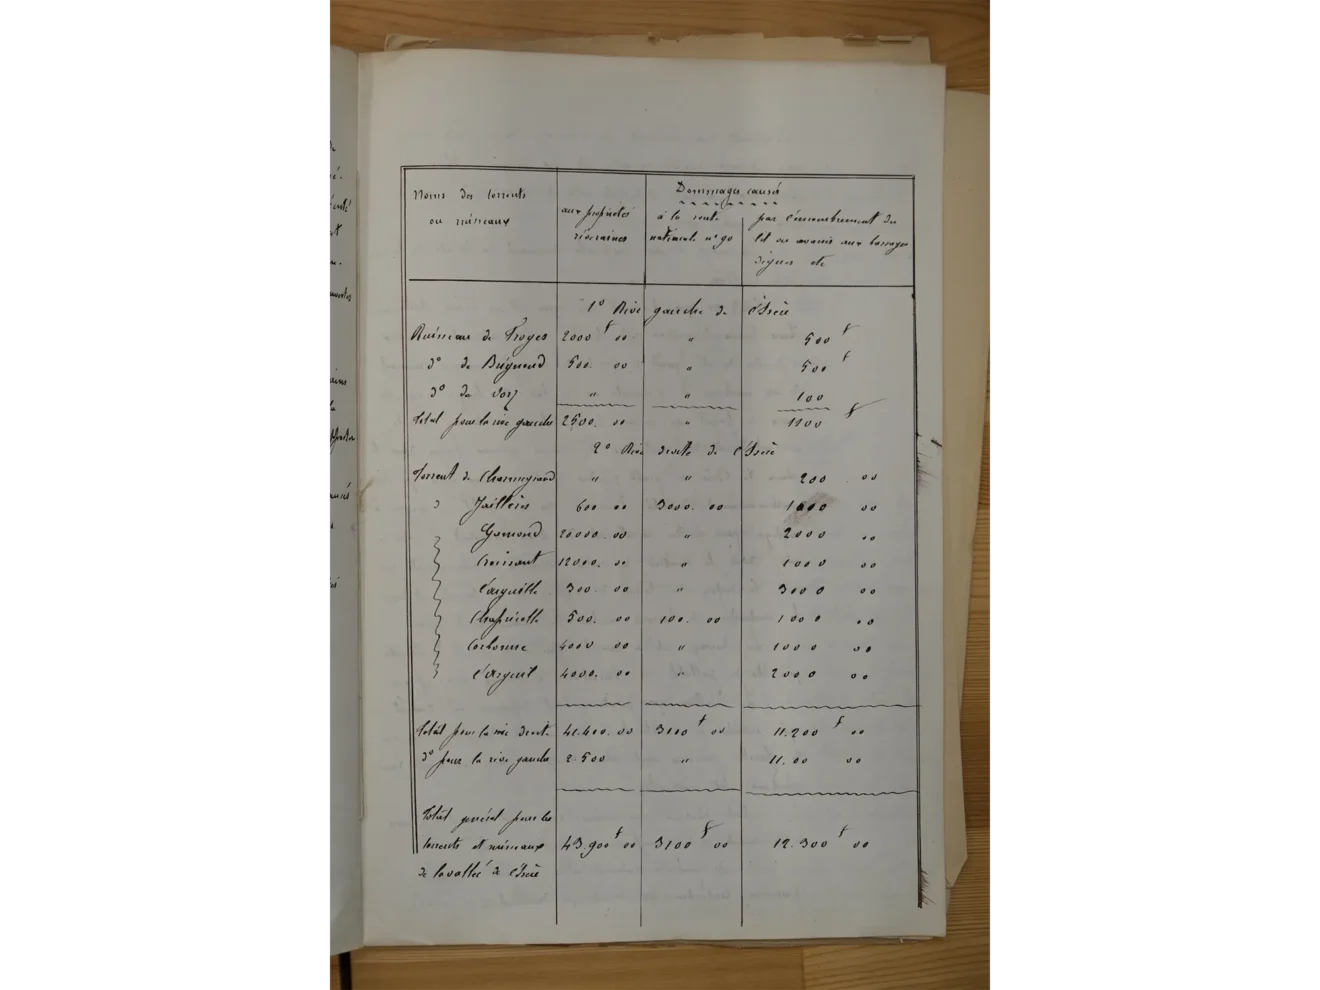 Dommages causés
Noms des torrents
ou ruisseaux
aux propriétés
riveraines
à la route
nationale n° 90
par l'encombrement du
lit ou avaries aux barrages
digues etc
1° Rive gauche de l'Isère
Ruisseau de Froges 2000 f 00 " 500 f
d° de Brignoud 500. 00 " 500 f
d° du Vorz " " 100
Total pour la rive gauche 2500. 00 " 1100 f
2° Rive droite de l'Isère
Torrent de " " 200 00
d Jaillères 600 00 3000. 00 1000 00
Gamond 20000. 00 " 2000 00
Croissant 12000. 00 " 1000 00
300. 00 " 3000 00
500. 00 100. 00 1000 00
Carbonne 4000 00 " 1000 00
4000. 00 " 2000 00
Total pour la rive droite 41.400. 00 3100 f 00 11.200 f 00
d° pour la rive gauche 2.500 " 11.00 00
Total général pour les
torrents et ruisseaux 43.900 f 00 3100 f 00 12.300 f 00
de la vallée de l'Isère